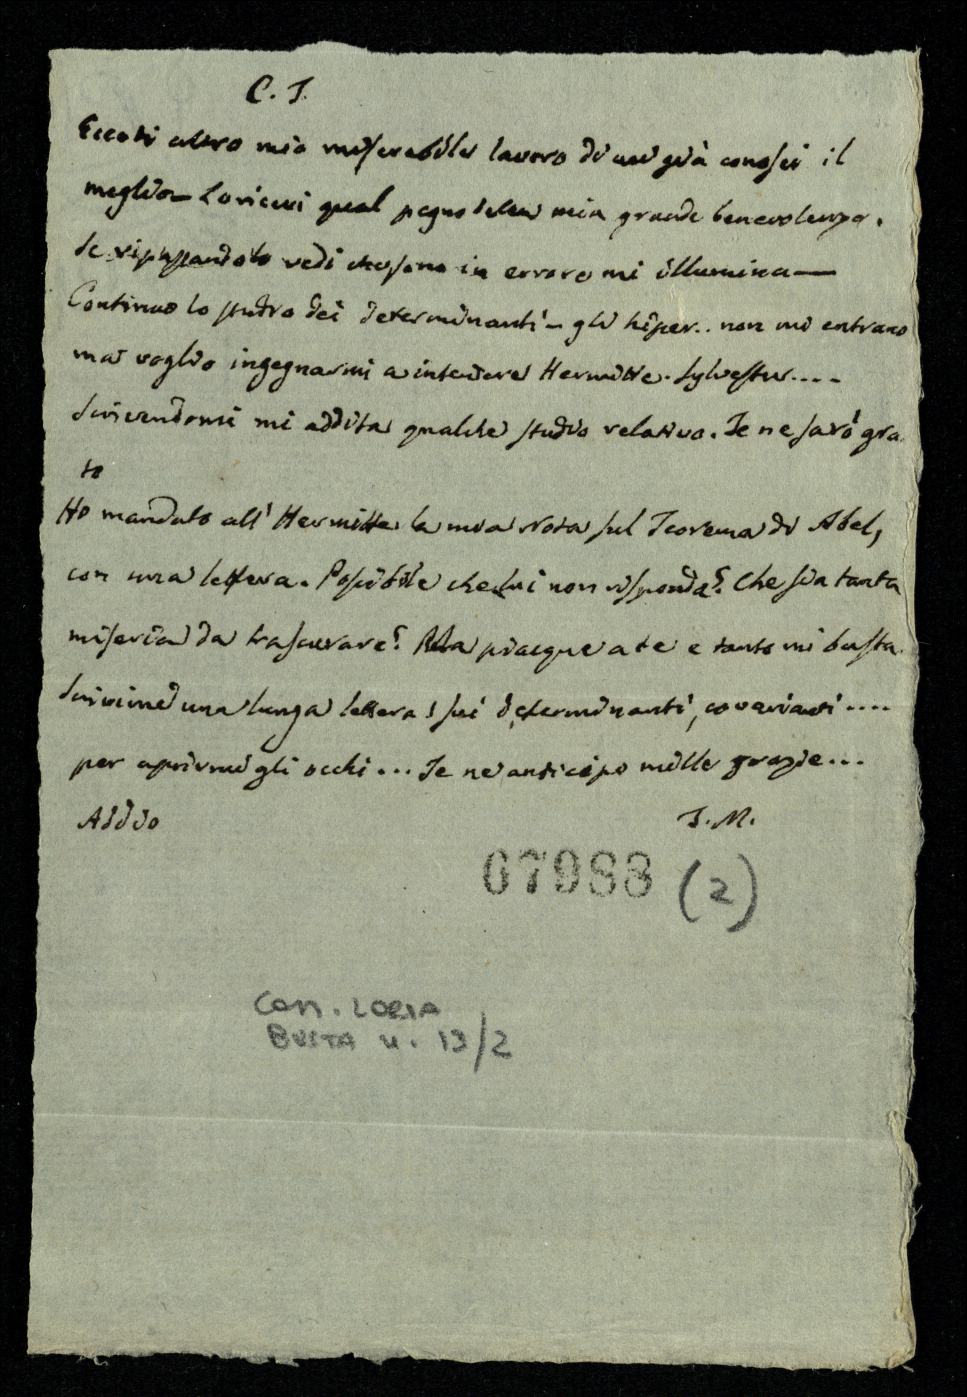 C. T.
Eccoti altro mio miserabile lavoro di cui già conosci il
meglio — Lo ricevi qual pegno della mia grande benevolenza.
Se ripassandolo vedi che sono in errore mi illumina —
Continuo lo studio dei determinanti — gli hiper.. non mi entrano
ma voglio ingegnarmi a intendere Hermitte. Sylvester....
Scrivendomi mi addita qualche studio relativo. Te ne sarò gra
to
Ho mandato all' Hermitte la mia Nota sul Teorema di Abel,
con una lettera. Possibile che lui non risponda? Che sia tanta
miseria da trascurare? Ma piacque a te e tanto mi basta.
Scrivimi una lunga lettera sui determinanti, covarianti....
per aprirmi gli occhi... Te ne anticipo mille grazie...
Addio T. M.
67988 (2)
Con. LORIA
BUSTA n. 13/2